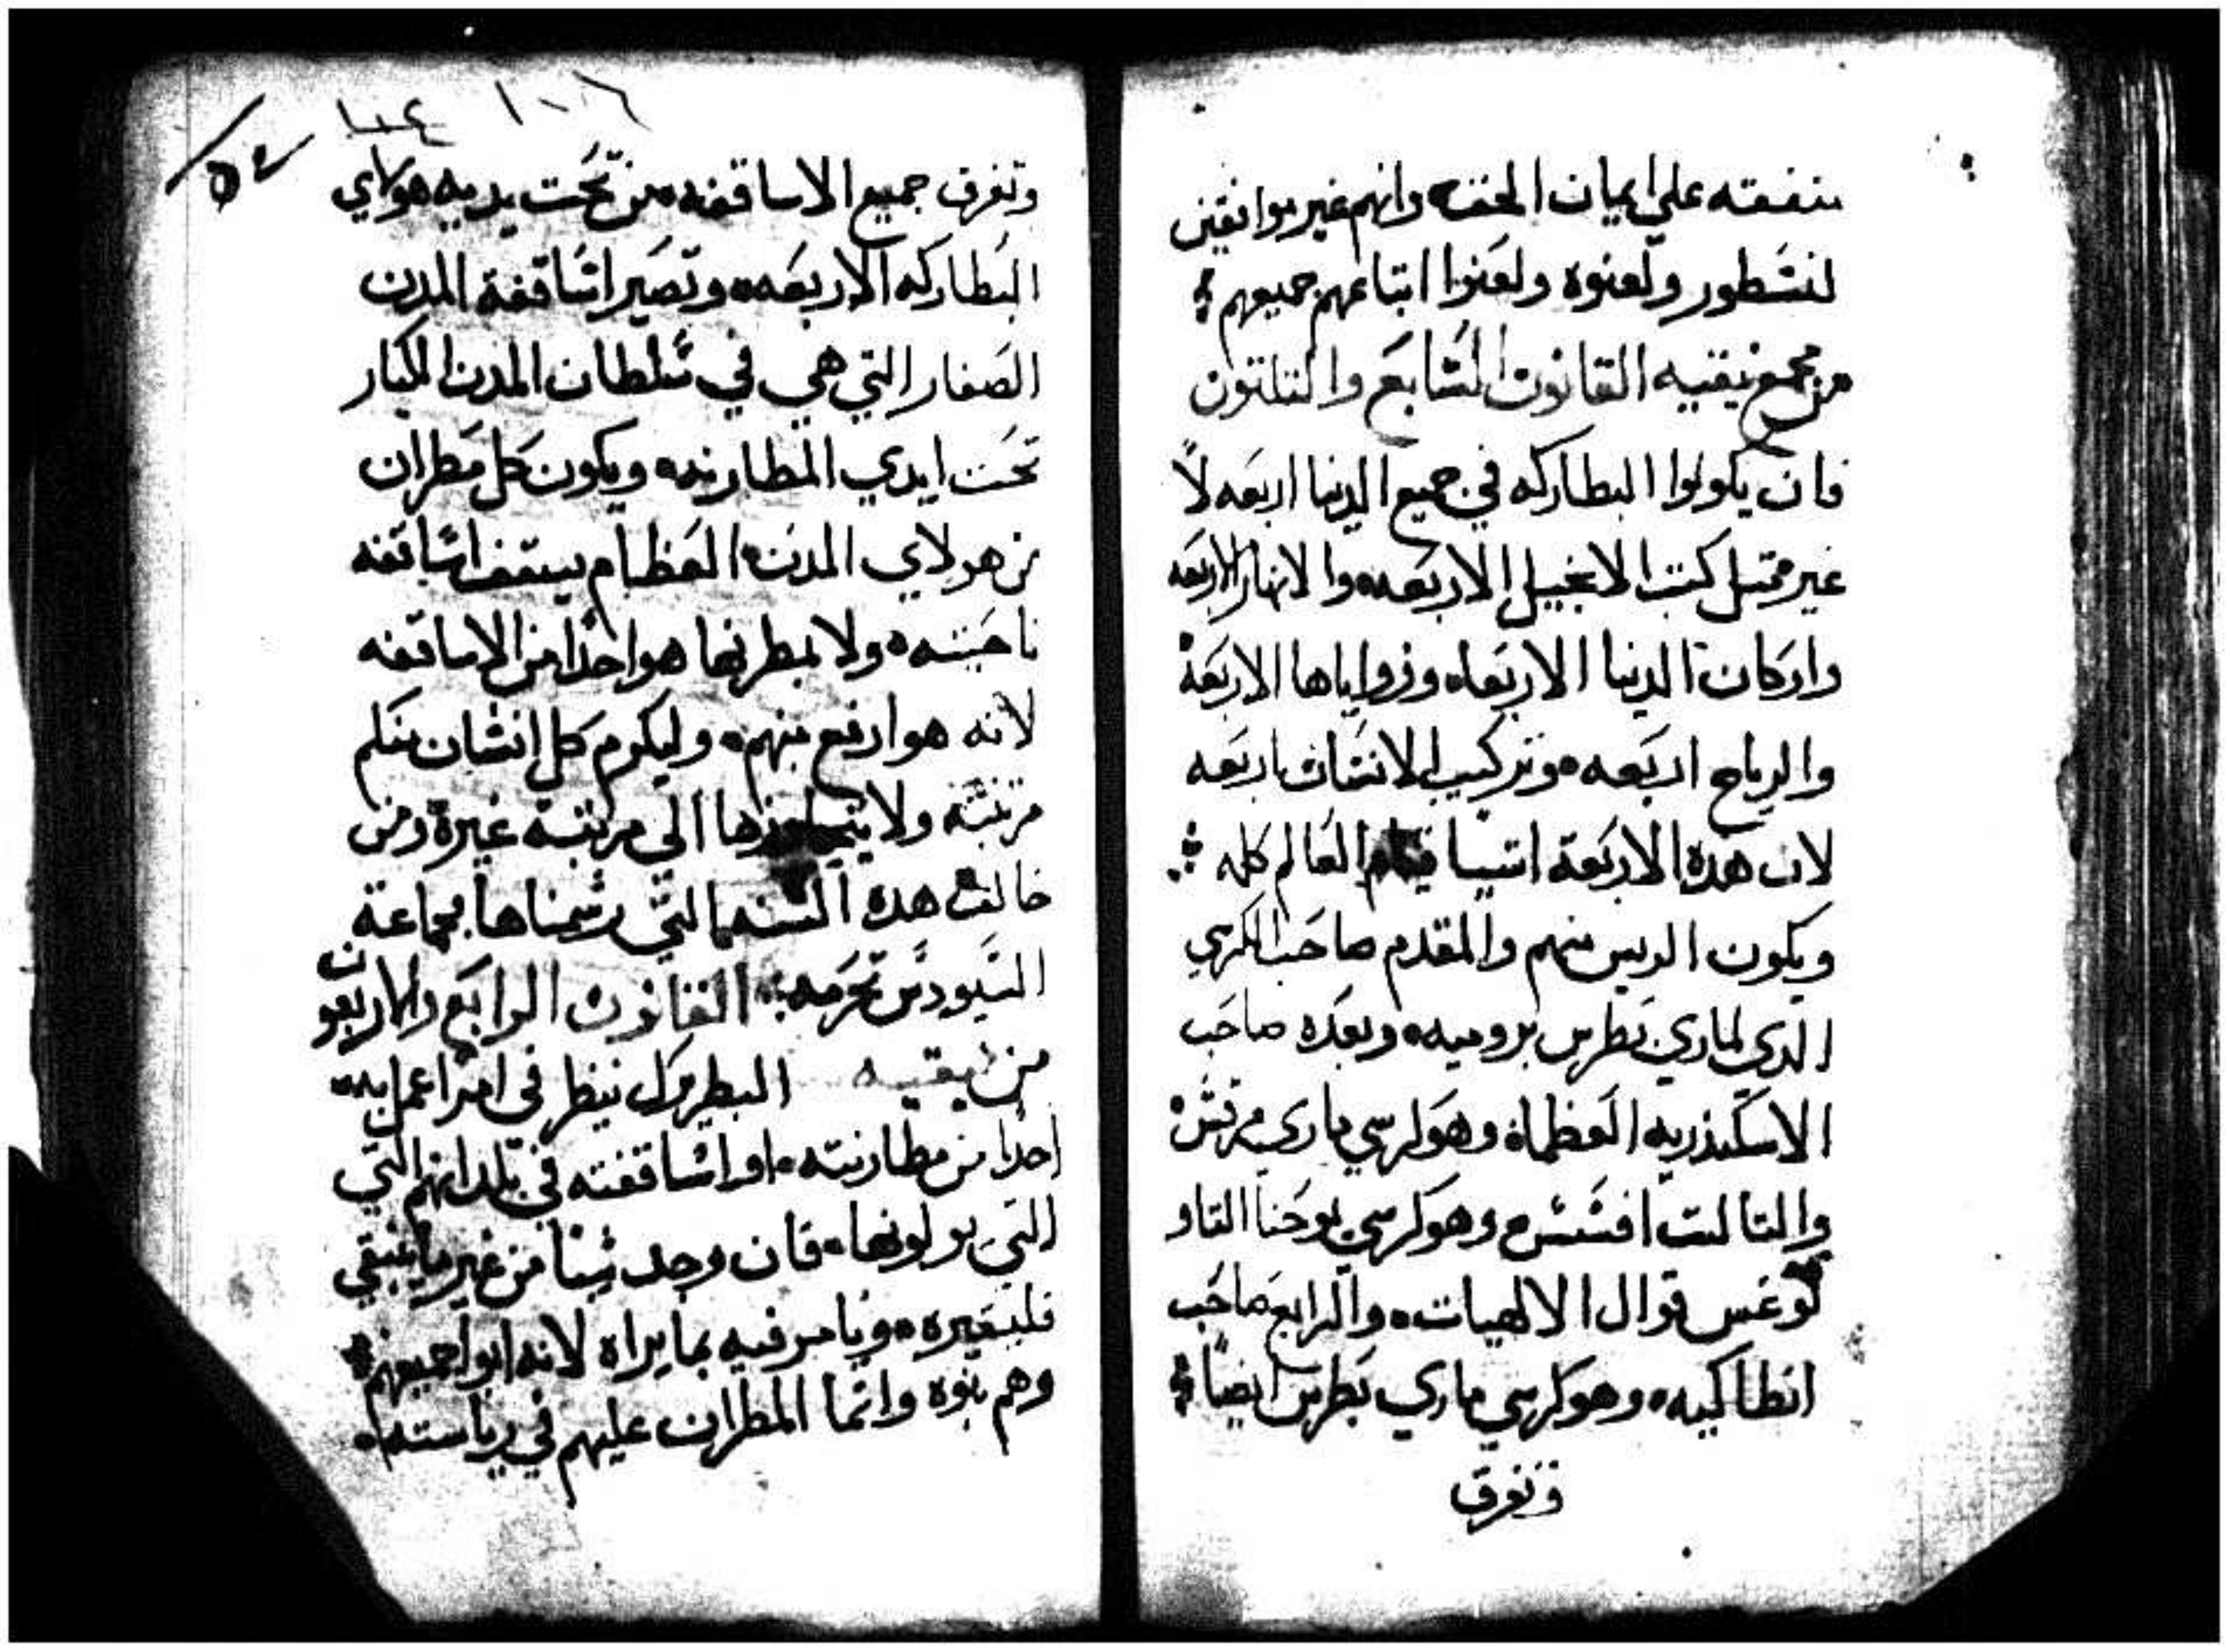 متفقه علي ايمان الحق وانهم غير موافقين
لنسطور ولعنوه ولعنوا اتباعهم جميعهم
من مجمع نيقيه القانون السابع والتلتون
فان يكونوا البطاركه في جميع الدنيا اربعه لا
غير متل كتب الانجيل الاربعه والانهار الاربعه
واركان الدنيا الاربعاه وزواياها الاربعة
والرياح اربعه وتركيب الانسان باربعه
لان هده الاربعة اشيا قيام العالم كله
ويكون الريس منهم والمقدم صاحب الكرسي
الدي لماري بطرس برومیه وبعده صاحب
الاسكندريه العظماه وهو كرسي ماري مرقس
والتالت افسس وهو كرسي يوحنا التاو
لوغس قوال الالهيات والرابع صاحب
انطاكيه وهو كرسي ماري بطرس ايضاً
وتفرق
١٠٤ ١٠٦
٥٤
وتفرق جميع الاساقفه من تحت يديه هولاي
البطاركه الاربعه وتصير اساقفة المدن
الصغار التي هي في سلطان المدن الكبار
تحت ايدي المطارنه ويكون كل مطران
من هولاي المدن العظام يسقف اساقفه
ناحيته ولا يمطرنها هو احدا من الاساقفه
لانه هو ارفع منهم وليكرم كل انسان منكم
مرتبته ولا يتجاوزها الي مرتبة غيره ومن
خالف هده السنه التي رسمناها بجماعة
السنودس تحرمه القانون الرابع والاربعون
من نيقيه البطريرك ينظر في امر اعمل به
احدا من مطارنته او اساقفته في بلدانهم التي
التي يولونها فان وجد شيا من غير ما ينبغي
فليغيره ويامر فيه بما يراه لانه ابو اجميعهم
وهم بنوه وانما المطران عليهم في رياسته